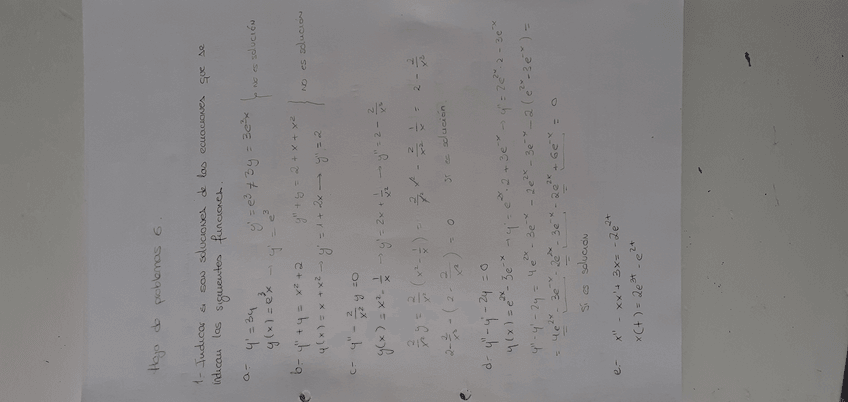 Hoja de problemas 6.
1.- Indicar si son soluciones de las ecuaciones que se
indican las siguientes funciones.
a.- y' = 3y y' = e³ ≠ 3y = 3e³x } no es solución
y(x) = e³x → y' = e³
b.- y'' + y = x² + 2 y'' + y = 2 + x + x² } no es solucion
y(x) = x + x² → y' = 1 + 2x → y'' = 2
c.- y'' - 2/x² y = 0
y(x) = x² - 1/x → y' = 2x + 1/x² → y'' = 2 - 2/x³
2/x² y = 2/x² (x² - 1/x) = 2/x² x² - 2/x² 1/x = 2 - 2/x³
2 - 2/x³ - (2 - 2/x³) = 0 si es solucion
d.- y'' - y' - 2y = 0
y(x) = e²ˣ - 3e⁻ˣ → y' = e²ˣ · 2 + 3e⁻ˣ → y'' = 2e²ˣ · 2 - 3e⁻ˣ
y'' - y' - 2y = 4e²ˣ - 3e⁻ˣ - 2e²ˣ - 3e⁻ˣ - 2(e²ˣ - 3e⁻ˣ) =
= 4e²ˣ - 3e⁻ˣ - 2e²ˣ - 3e⁻ˣ - 2e²ˣ + 6e⁻ˣ = 0
Si es solución
e.- x'' - xx' + 3x = -2e²ᵗ
x(t) = 2e³ᵗ - e²ᵗ